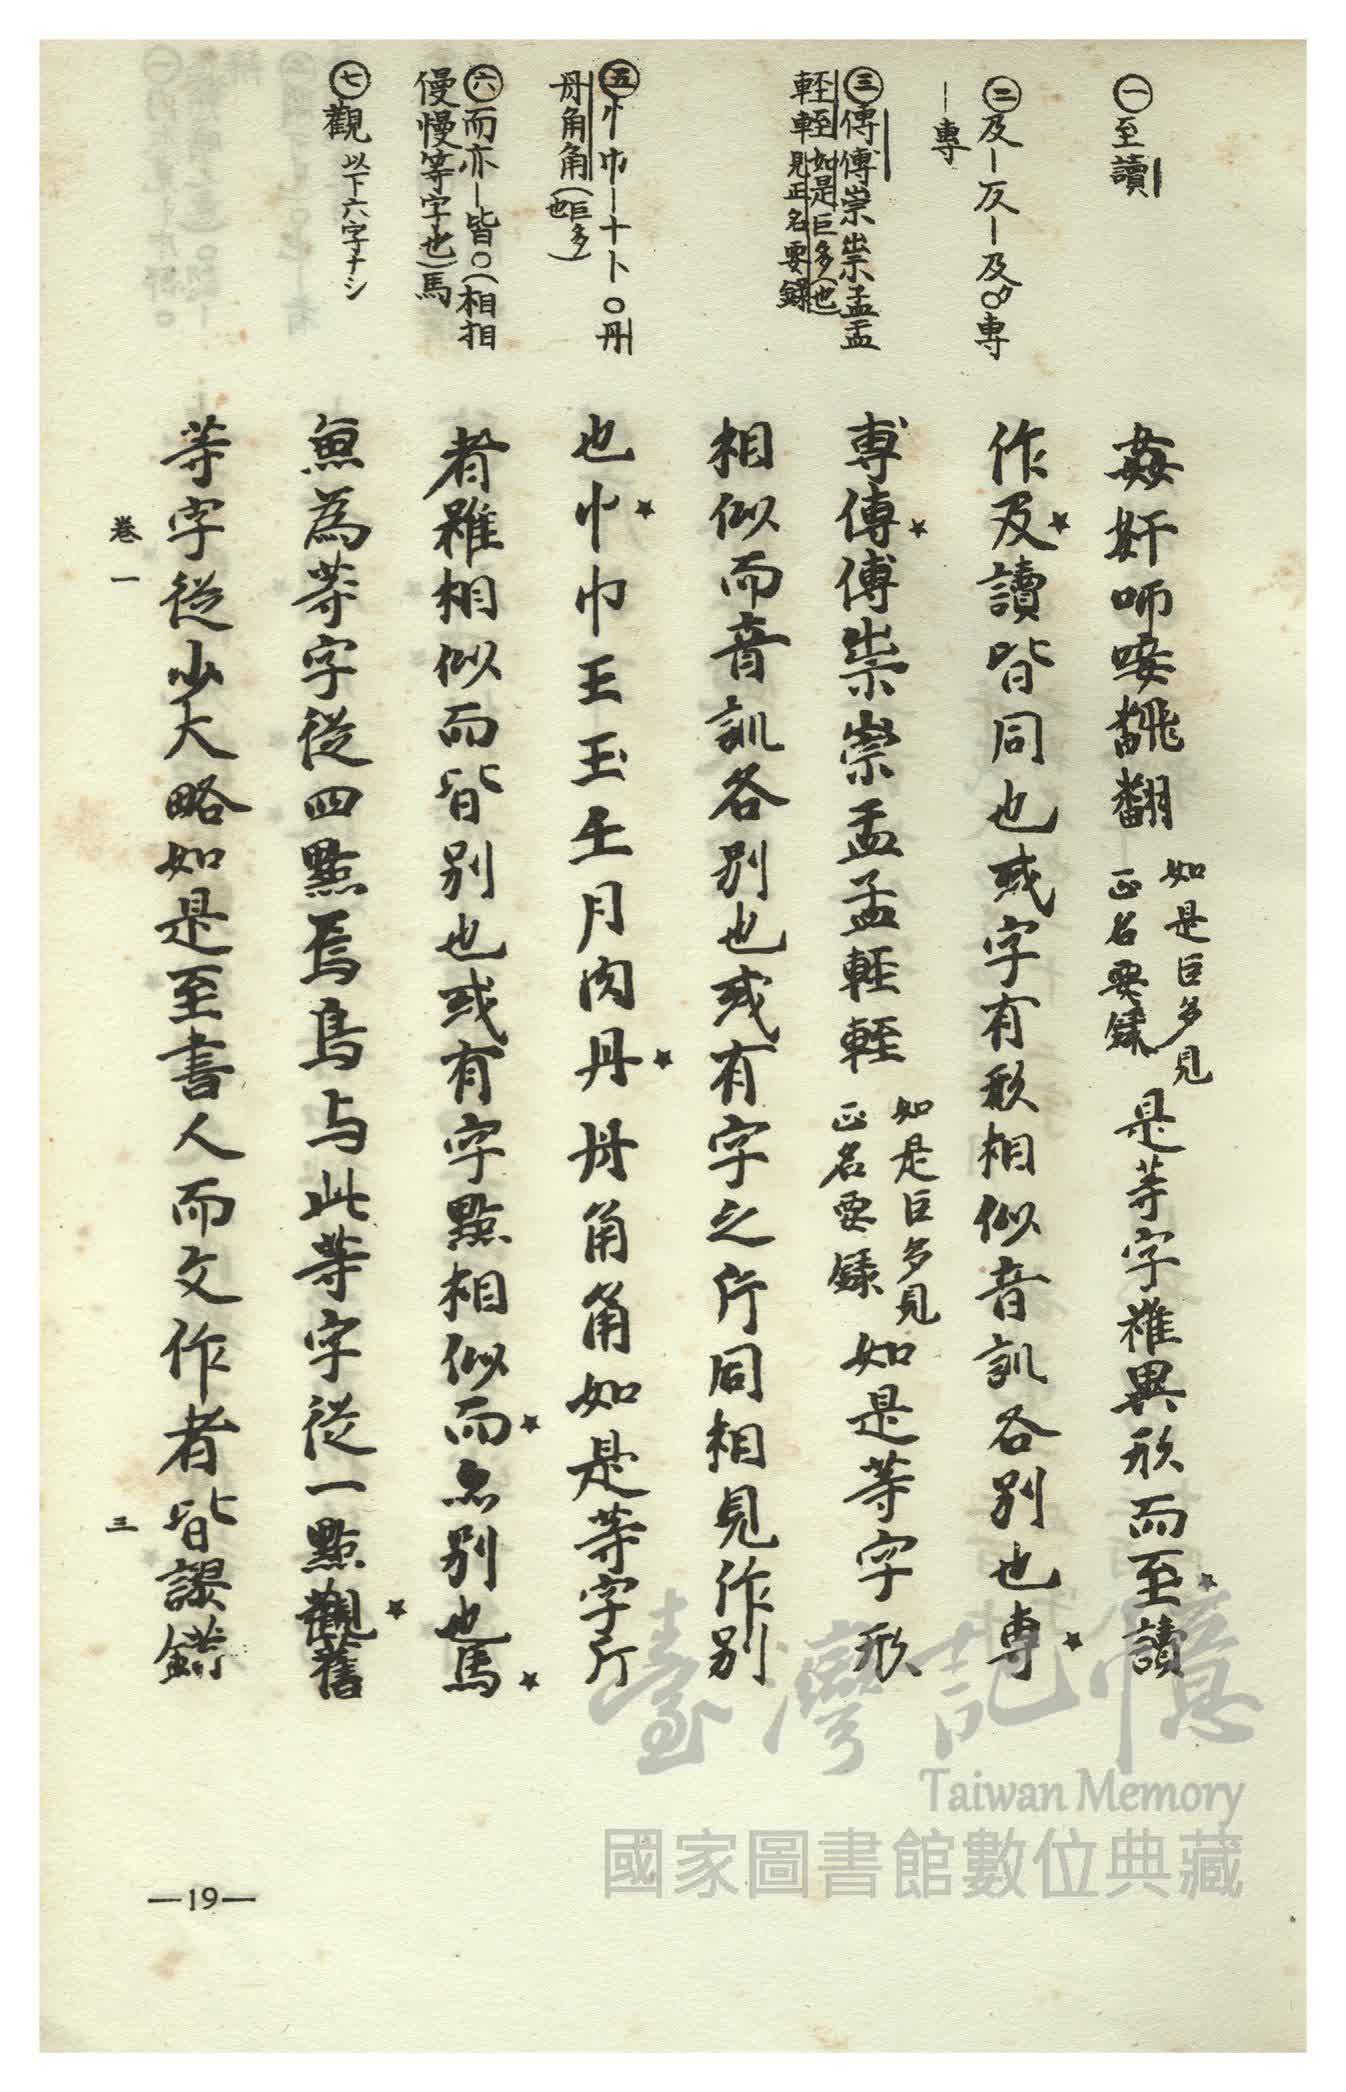 ㊀至讀
㊁及—仄—及○専
—専
㊂傳傅崇祟孟盂
輊輕如是巨多(也
見正名要録
㊄忄巾—十卜○丹
丹角角(巨多)
也
㊅而亦—皆○(相相
僈慢等字也)馬
㊆觀以下六字ナシ
姦奸呝唼飜翻
如是巨多見
正名要録
是等字雖異形而至讀
作及讀皆同也或字有形相似音訓各別也専
專傳傅祟崇孟盂輕輊
如是巨多見
正名要録
如是等字形
相似而音訓各別也或有字之所同相見作別
也忄巾王玉壬月肉丹丹角角如是等字所
者雖相似而皆別也或有字點相似而亦別也馬
魚為等字從四點焉鳥与此等字從一點觀舊
等字從少大略如是至書人而文作者皆謬錯
卷一
三
—19—
臺灣記憶
Taiwan Memory
國家圖書館數位典藏